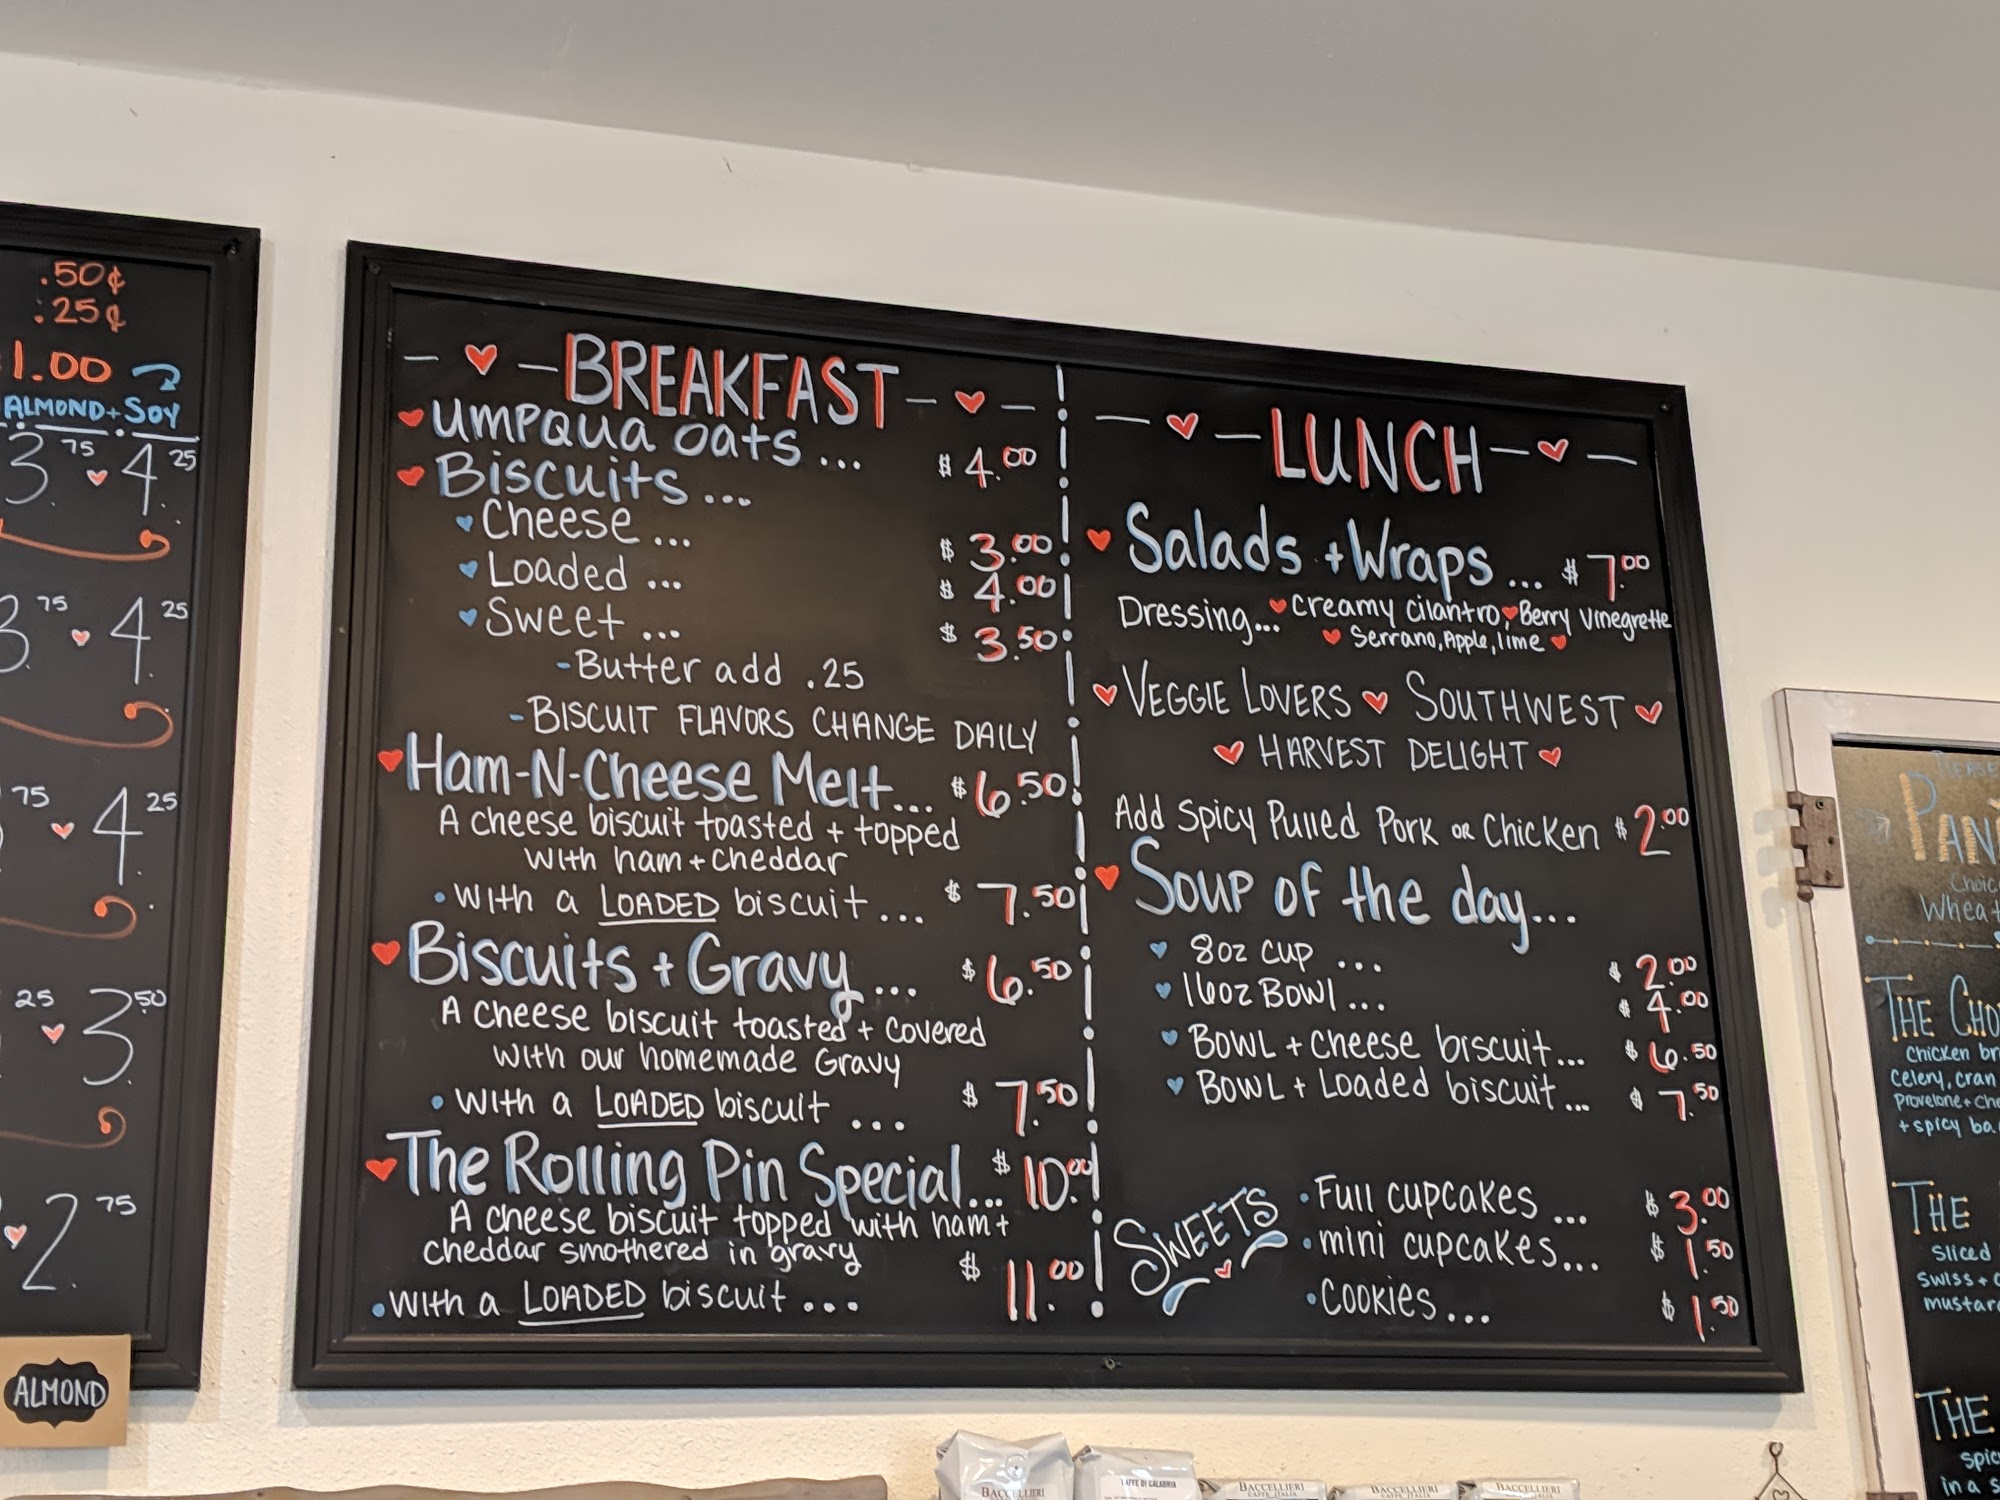 .50¢
.25¢
1.00
ALMOND + SOY
3.75 4.25
3.75 4.25
75 4.25
25 3.50
2.75
ALMOND
BREAKFAST
Umpqua Oats... $4.00
Biscuits...
Cheese... $3.00
Loaded... $4.00
Sweet... $3.50
-Butter add .25
-BISCUIT FLAVORS CHANGE DAILY
Ham-N-Cheese Melt... $6.50
A cheese biscuit toasted + topped
with ham + cheddar
• With a LOADED biscuit... $7.50
Biscuits + Gravy... $6.50
A cheese biscuit toasted + covered
with our homemade Gravy
• With a LOADED biscuit... $7.50
The Rolling Pin Special... $10.00
A cheese biscuit topped with ham +
cheddar smothered in gravy
• With a LOADED biscuit... $11.00
LUNCH
Salads + Wraps... $7.00
Dressing... Creamy Cilantro, Berry Vinegrette
Serrano, Apple, lime
VEGGIE LOVERS SOUTHWEST
HARVEST DELIGHT
Add Spicy Pulled Pork or Chicken $2.00
Soup of the day...
8oz cup... $2.00
16oz Bowl... $4.00
Bowl + cheese biscuit... $6.50
Bowl + Loaded biscuit... $7.50
SWEETS
• Full cupcakes... $3.00
• mini cupcakes... $1.50
• Cookies... $1.50
THE
Chicken
Celery, cran
Provelone +
+ spicy
THE
Sliced
Swiss +
THE
in a
BACCELLIERI
CAFFE DI CALABRIA
BACCELLIERI
CAFFE ITALIA
BACCELLIERI
CAFFE ITALIA
BACCELLIERI